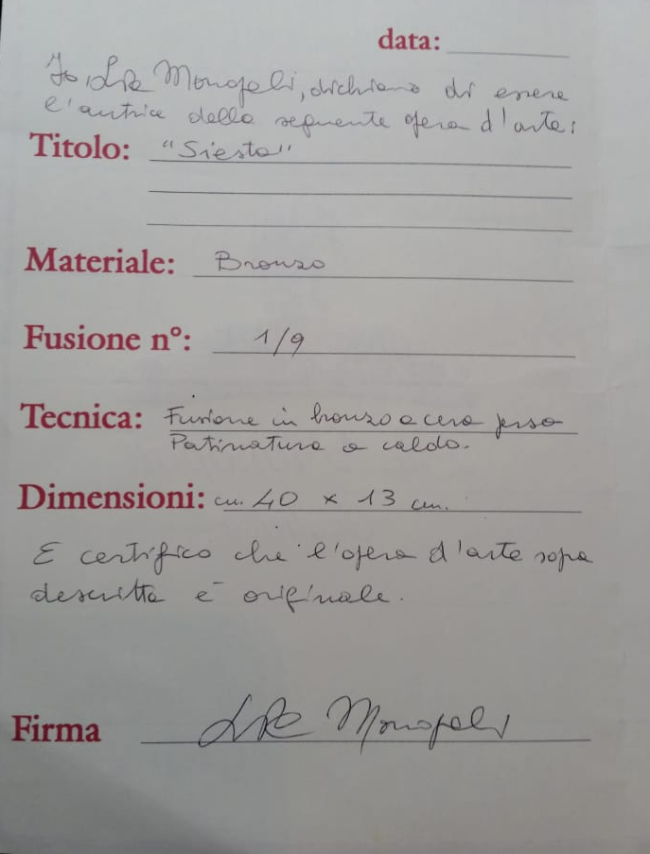 data:
Io, Lia Monopoli, dichiaro di essere
l'autrice della seguente opera d'arte:
Titolo: "Siesta"
Materiale: Bronzo
Fusione n°: 1/9
Tecnica: Fusione in bronzo a cera persa
Patinatura a caldo.
Dimensioni: cm. 40 x 13 cm.
E certifico che l'opera d'arte sopra
descritta è originale.
Firma Monopoli